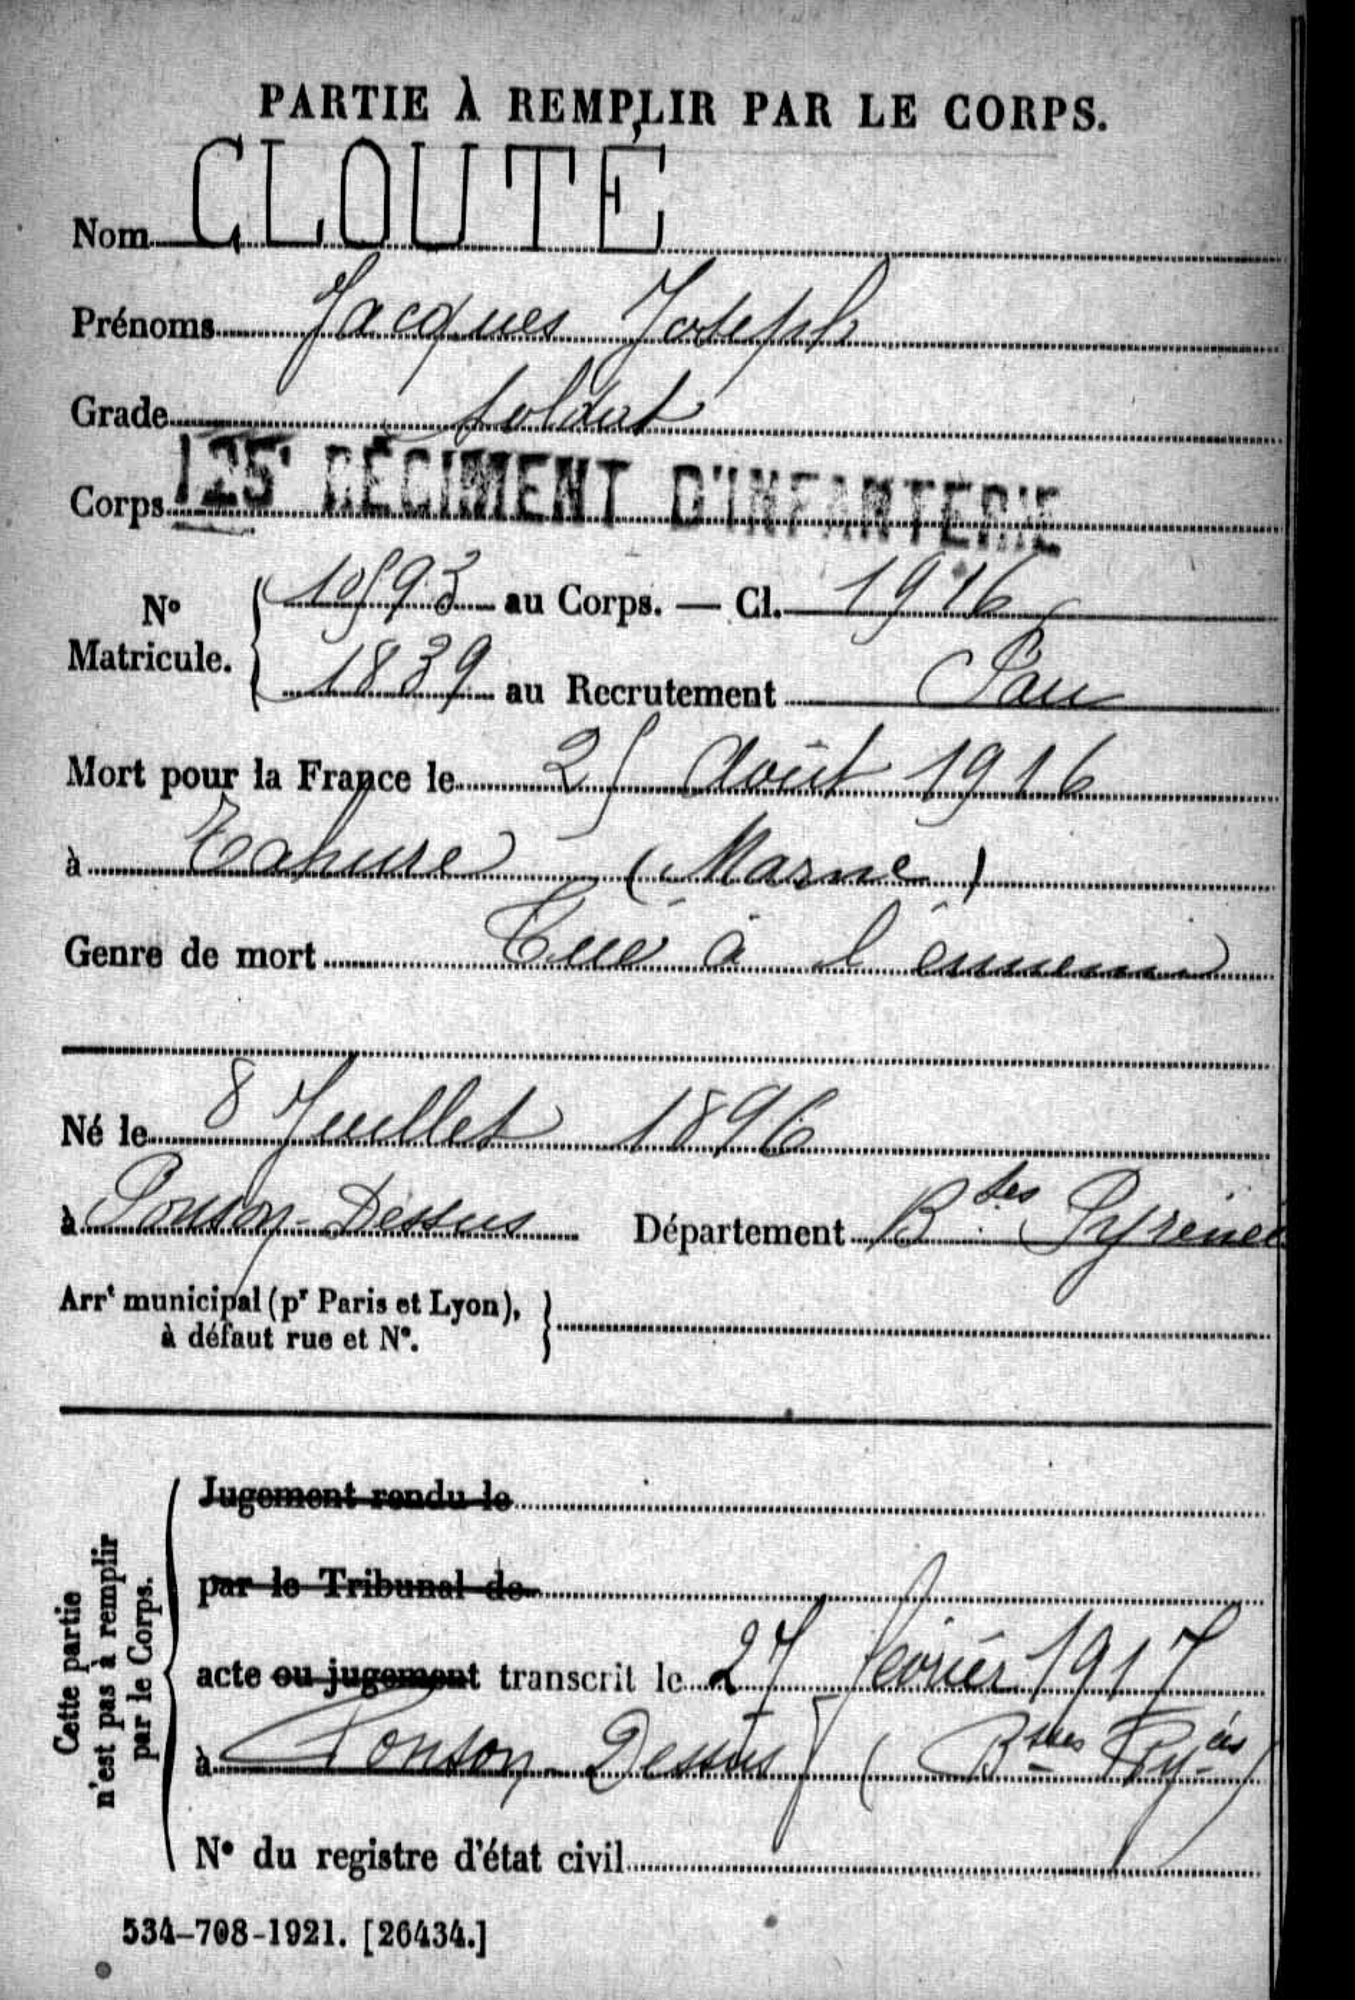 PARTIE À REMPLIR PAR LE CORPS.
Nom CLOUTÉ
Prénoms Jacques Joseph
Grade soldat
Corps 125e RÉGIMENT D'INFANTERIE
No Matricule. { 10593 au Corps. — Cl. 1916
1839 au Recrutement Pau
Mort pour la France le 25 Août 1916
à Tahure (Marne)
Genre de mort Tué à l'ennemi
Né le 8 Juillet 1896
à Ponson-Dessus Département Bses Pyrénées
Arrt municipal (pr Paris et Lyon),
à défaut rue et No.
Cette partie
n'est pas à remplir
par le Corps.
Jugement rendu le
par le Tribunal de
acte ou jugement transcrit le 27 février 1917
à Ponson-Dessus (Bses Py-ées)
No du registre d'état civil
534-708-1921. [26434.]